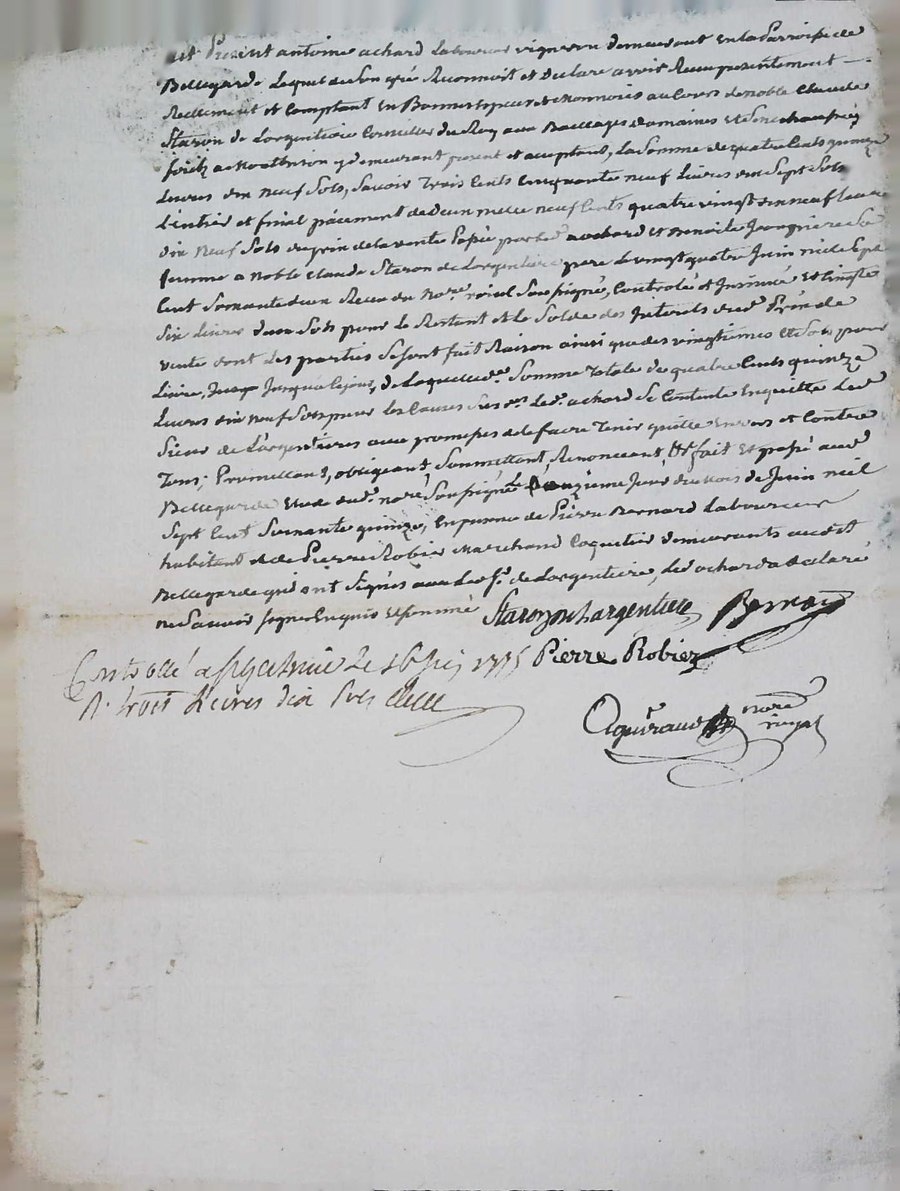 fut Présent antoine achard Laboureur vigneron demeurant en la Parroisse de
Bellegarde Lequel de son gré Reconnoit et declare avoir Reçu presentement
Reellement et Comptant en Bonnes especes et monnois au Cours de noble Claude
Staron de Largentiere Conseiller du Roy aux Bailliages Domaines et Senechaussées
forêtz a Montbrison y demeurant present et acceptant, la Somme de quatre Cents quinze
Livres dix neuf Sols, Savoir trois Cents Cinquante neuf Livres dix Sept Sols
L'entier et final païement de deux mille neuf Cents quatre vingt dix neuf Livres
dix neuf Sols du prix de la vente Passée par led achard et Benoite Jea Sa
femme a noble Claude Staron de Largentiere pere Le vingt quatre Juin mil Sept
Cent Soixante deux Recue du nore. roial Soussigné, Controlé et Insinué et Cinquante
Six Livres deux Sols pour le Restant et le Solde des Interets dud. Prix de
vente dont Les parties Se sont fait Raison ainsi que des vingtiemes et Sols pour
Livre, Jusqu'a Ce jour, de Laquelle de. Somme totale de quatre Cents quinze
Livres dix neuf Sols pour les Causes Sus d. Led. achard Se Contente En quitte Led
Sieur de L'argentiere avec promesses de le faire tenir quitte envers et Contre
Tous; Promettant, obligeant Soummettant, Renonceant &a fait et passé aud
Bellegarde Etude dud. nore Soussigné Le quinzieme Jour du Mois de Juin mil
Sept Cent Soixante quinze, En presence de Pierre Bernard Laboureur
habitant et de Pierre Robier Marchand Coquetier demeurants audit
Bellegarde qui ont Signés avec Led Sr. de Largentiere, Led achard a declaré
ne Savoir Signer Enquis et Sommé
Staron de Largentiere Bernard
Controllé a St Galmier Le 16 Juin 1775 Pierre Robier
R. trois Livres dix Sols
Aguiraud nore
royal